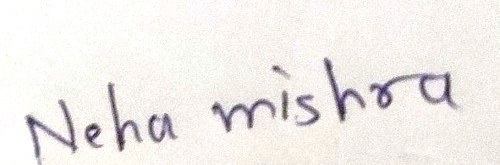 Neha mishra